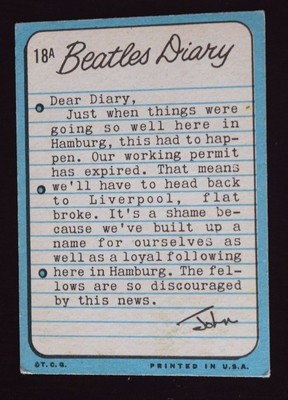 18A Beatles Diary
Dear Diary,
Just when things were
going so well here in
Hamburg, this had to hap-
pen. Our working permit
has expired. That means
we'll have to head back
to Liverpool, flat
broke. It's a shame be-
cause we've built up a
name for ourselves as
well as a loyal following
here in Hamburg. The fel-
lows are so discouraged
by this news.
John
©T.C.G. PRINTED IN U.S.A.